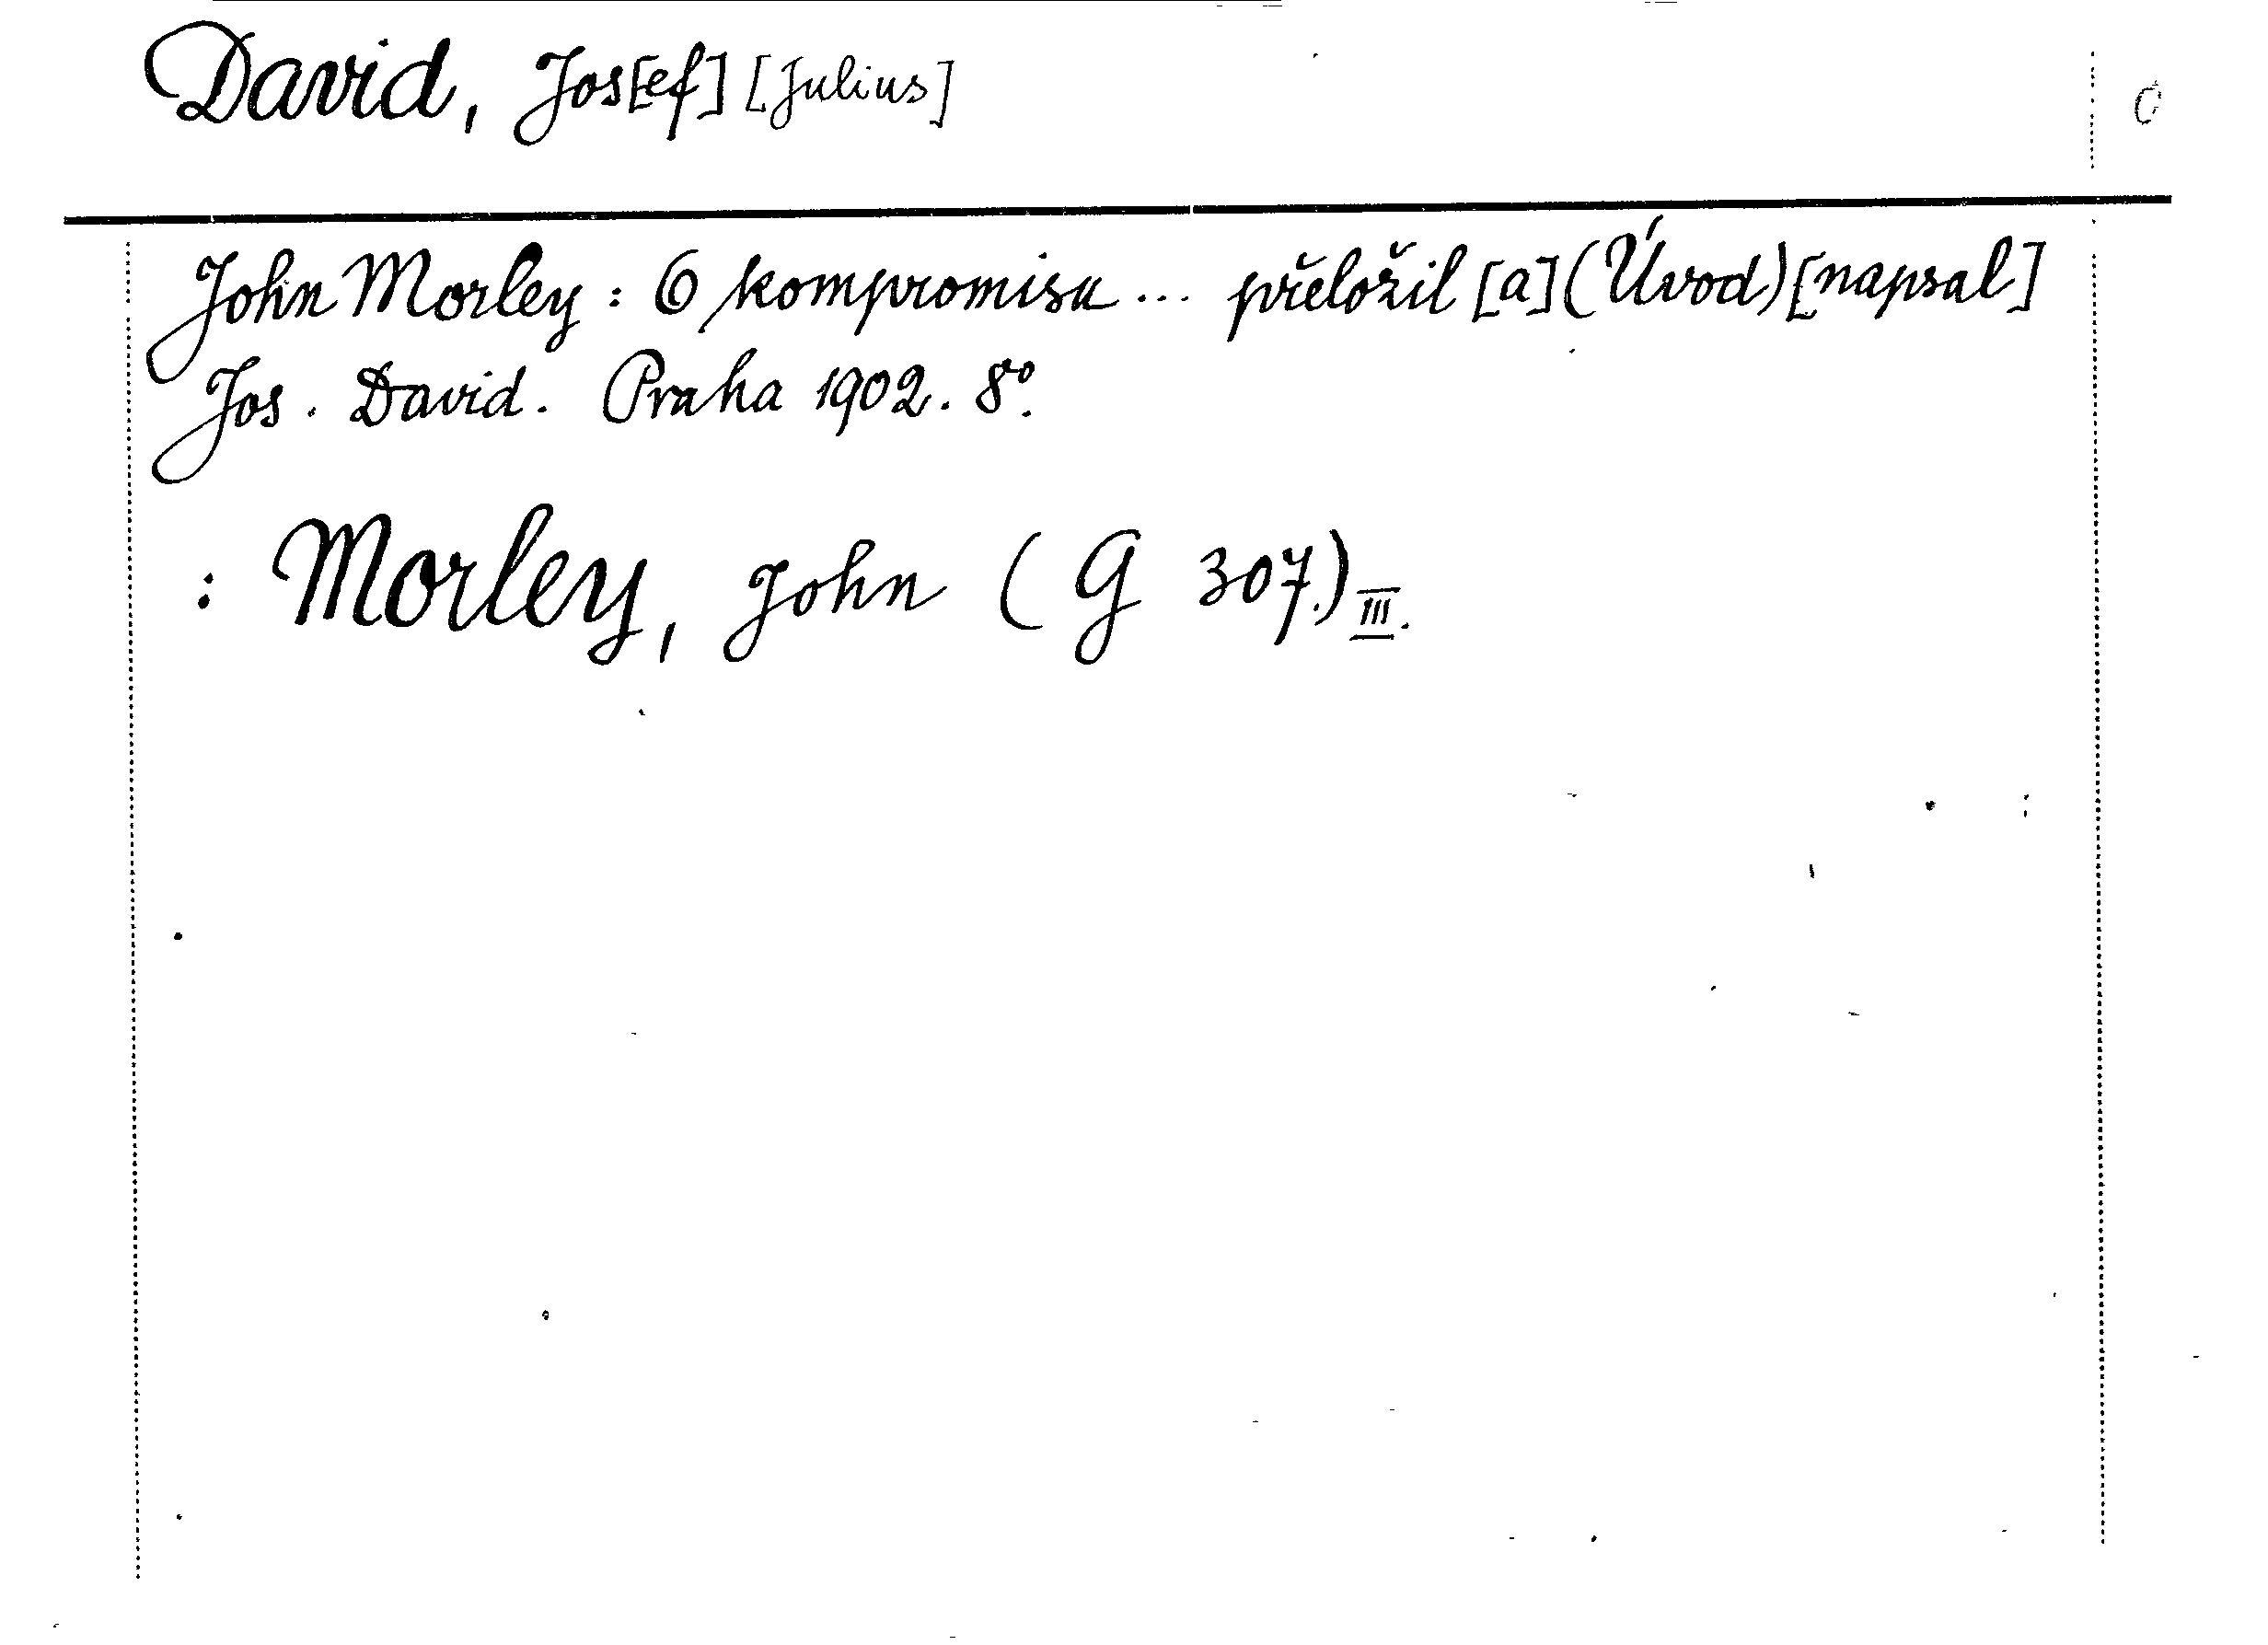 David, Jos[ef] [Julius]
John Morley: O kompromisu... přeložil [a] (Úvod) [napsal]
Jos. David. Praha 1902. 8º.
: Morley, John (G 307.) III.